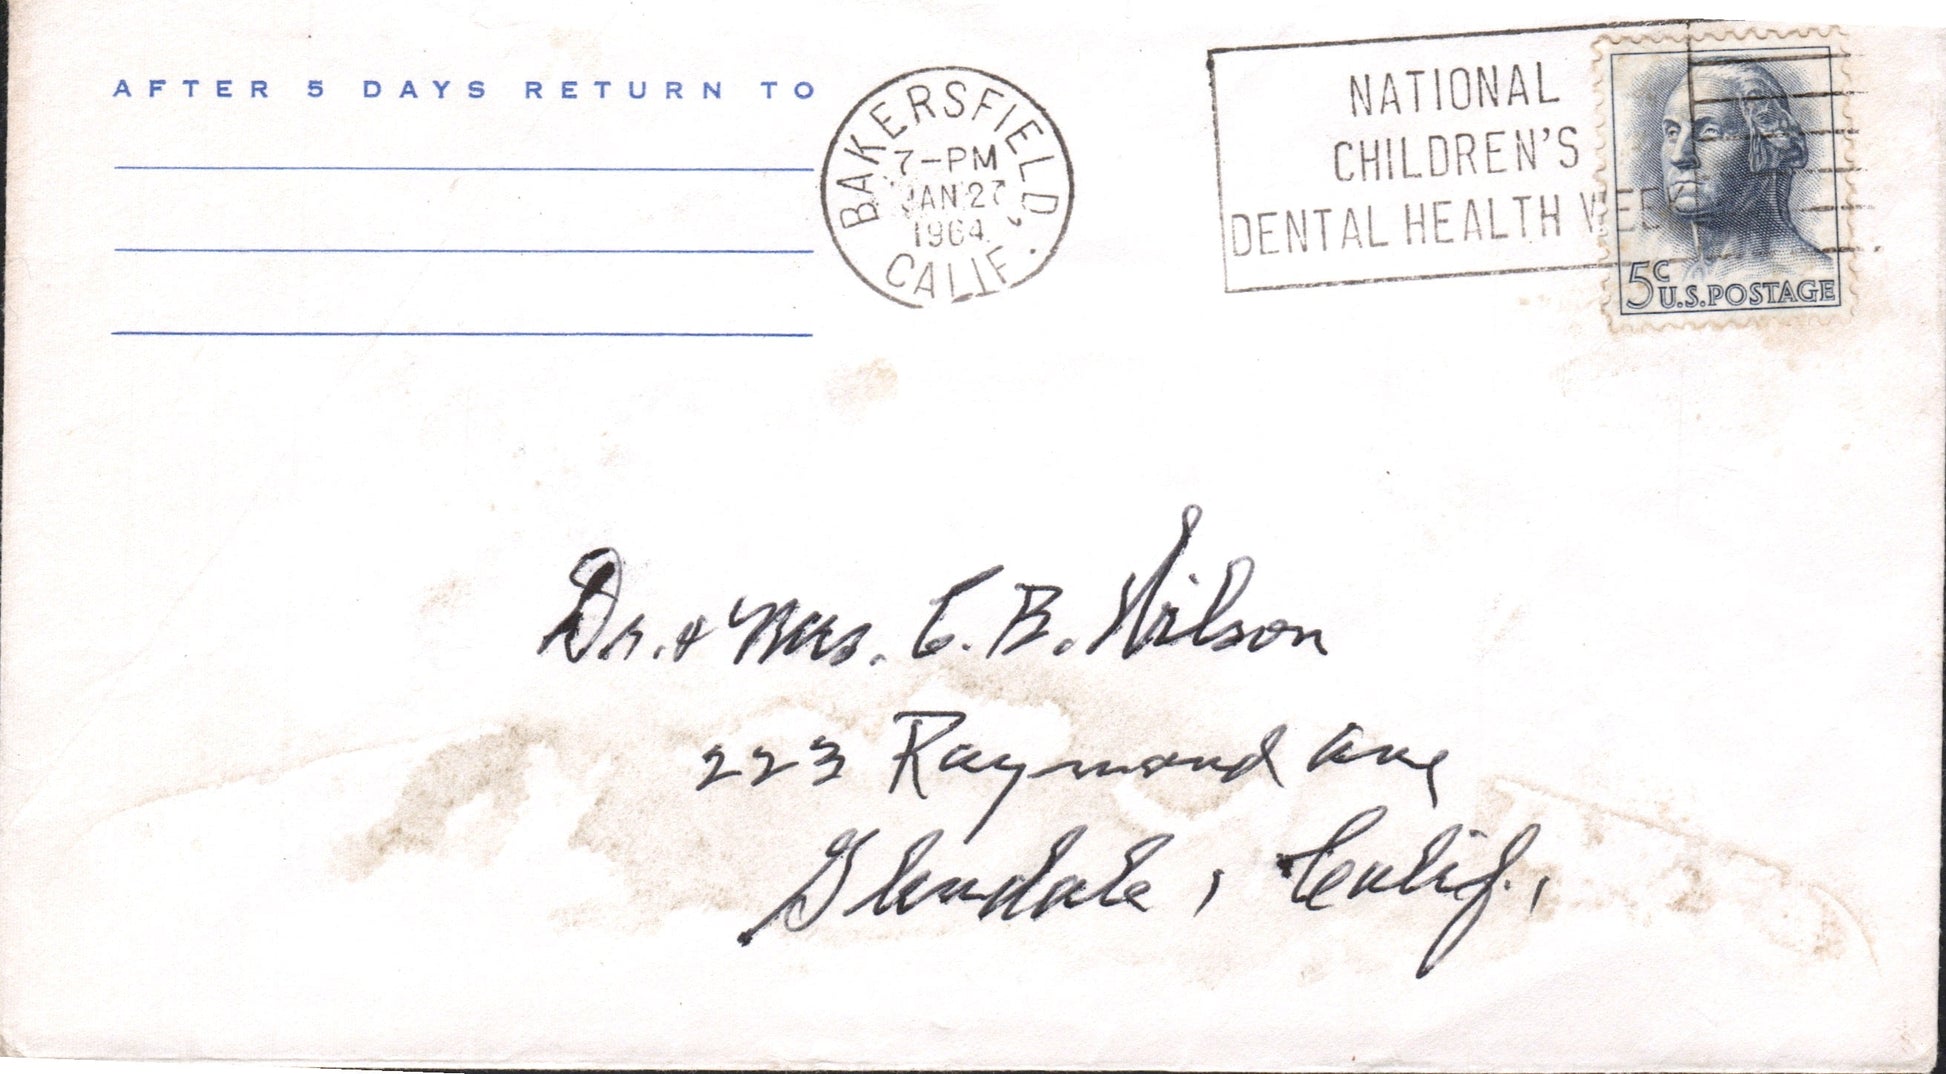 AFTER 5 DAYS RETURN TO
BAKERSFIELD, CALIF.
7-PM
JAN 27
1964
NATIONAL
CHILDREN'S
DENTAL HEALTH WEEK
5c
U.S.POSTAGE
Dr. & Mrs. C. B. Wilson
223 Raymond Ave
Glendale, Calif.,